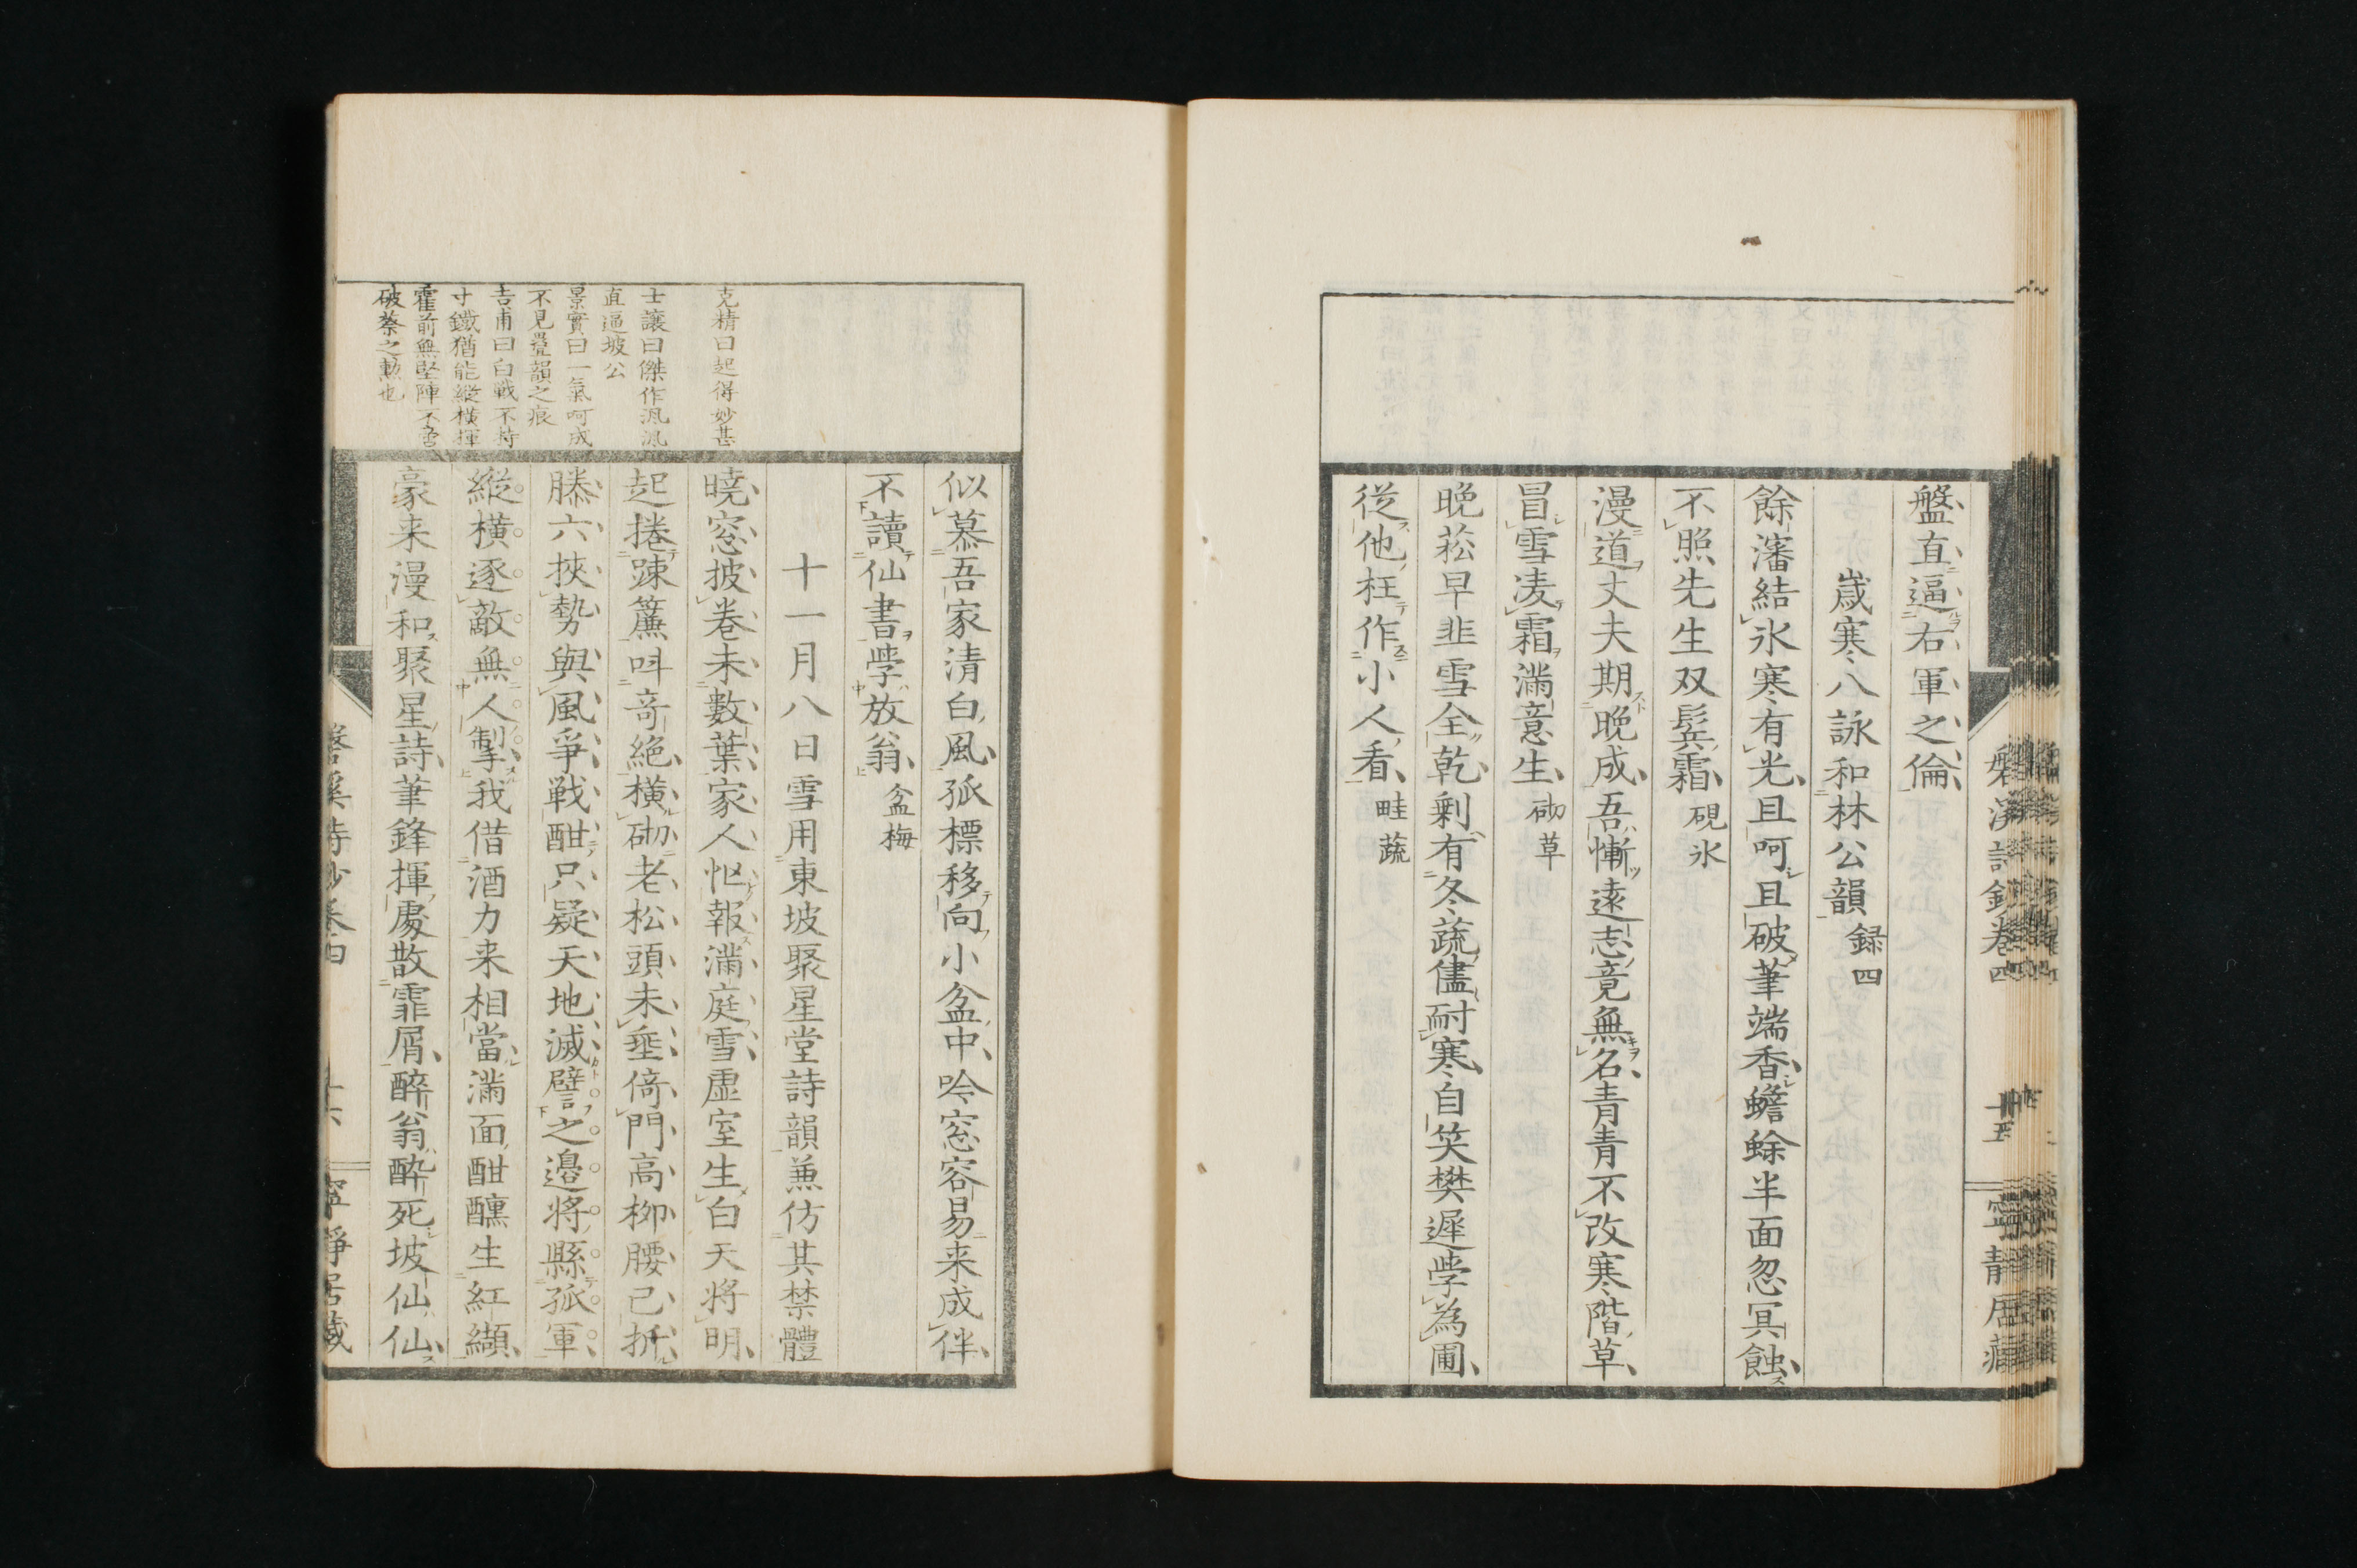 盤直逼右軍之倫
歳寒八詠和林公韻 録四
餘瀋結氷寒有光且呵且破筆端香蟾蜍半面忽冥蝕
不照先生双鬂霜 硯氷
漫道丈夫期晩成吾慚遠志竟無名青青不改寒階草
冒雪凌霜滿意生 砌草
晩菘早韭雪全乾剰有冬蔬儘耐寒自笑樊遲学為圃
従他枉作小人看 畦蔬
似慕吾家清白風孤標移向小盆中吟窓容易来成伴
不讀仙書学放翁 盆梅
十一月八日雪用東坡聚星堂詩韻兼仿其禁體
曉窓披卷未數葉家人忙報滿庭雪虚室生白天將明
起捲疎簾呌奇絶橫砌老松頭未埀倚門高柳腰已折
滕六挾勢與風爭戦酣只疑天地滅譬之邊將縣孤軍
縱橫逐敵無人掣我借酒力来相當滿面酣醺生紅纈
豪来漫和聚星詩筆鋒揮處散霏屑醉翁醉死坡仙仙
克精曰起得妙甚
士讓曰傑作渢渢
直逼坡公
景實曰一氣呵成
不見疊韻之痕
吉甫曰白戦不持
寸鐵猶能縱橫揮
霍前無堅陣不啻
破蔡之勲也